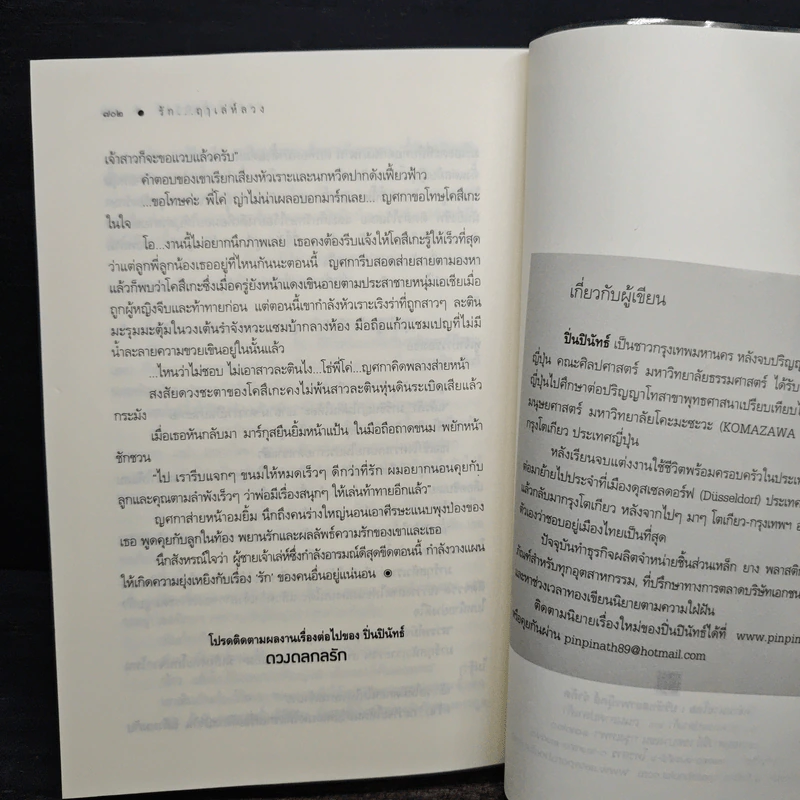 ๗๐๒ รัก...ฤๅเล่ห์ลวง
เจ้าสาวก็จะขอแวบแล้วครับ"
คำตอบของเขาเรียกเสียงหัวเราะและนกหวีดปากดังเฟี้ยวฟ้าว
...ขอโทษค่ะ พี่โค่ ญ่าไม่น่าเผลอบอกมาร์กเลย... ญศกาขอโทษโคสึเกะ
ในใจ
โอ...งานนี้ไม่อยากนึกภาพเลย เธอคงต้องรีบแจ้งให้โคสึเกะรู้ให้เร็วที่สุด
ว่าแต่ลูกพี่ลูกน้องเธออยู่ที่ไหนกันนะตอนนี้ ญศการีบสอดส่ายสายตามองหา
แล้วก็พบว่าโคสึเกะซึ่งเมื่อครู่ยังหน้าแดงเขินอายตามประสาชายหนุ่มเอเชียเมื่อ
ถูกผู้หญิงจีบและท้าทายก่อน แต่ตอนนี้เขากำลังหัวเราะเริงร่าที่ถูกสาวๆ ละติน
มะรุมมะตุ้มในวงเต้นรำจังหวะแซมบ้ากลางห้อง มือถือแก้วแชมเปญที่ไม่มี
น้ำละลายความขวยเขินอยู่ในนั้นแล้ว
...ไหนว่าไม่ชอบ ไม่เอาสาวละตินไง...โธ่พี่โค่...ญศกาคิดพลางส่ายหน้า
สงสัยดวงชะตาของโคสึเกะคงไม่พ้นสาวละตินหุ่นดินระเบิดเสียแล้ว
กระมัง
เมื่อเธอหันกลับมา มาร์กุสยืนยิ้มหน้าแป้น ในมือถือถาดขนม พยักหน้า
ชักชวน
"ไป เรารีบแจกๆ ขนมให้หมดเร็วๆ ดีกว่าที่รัก ผมอยากนอนคุยกับ
ลูกและคุณตามลำพังเร็วๆ ว่าพ่อมีเรื่องสนุกๆ ให้เล่นท้าทายอีกแล้ว"
ญศกาส่ายหน้าอมยิ้ม นึกถึงคนร่างใหญ่นอนเอาศีรษะแนบพุงป่องของ
เธอ พูดคุยกับลูกในท้อง พยานรักและผลลัพธ์ความรักของเขาและเธอ
นึกสังหรณ์ใจว่า ผู้ชายเจ้าเล่ห์ซึ่งกำลังอารมณ์ดีสุดขีดตอนนี้ กำลังวางแผน
ให้เกิดความยุ่งเหยิงกับเรื่อง 'รัก' ของคนอื่นอยู่แน่นอน
โปรดติดตามผลงานเรื่องต่อไปของ ปิ่นปินัทธ์
ดวงดลกลรัก
เกี่ยวกับผู้เขียน
ปิ่นปินัทธ์ เป็นชาวกรุงเทพมหานคร หลังจบปริญญ
ญี่ปุ่น คณะศิลปศาสตร์ มหาวิทยาลัยธรรมศาสตร์ ได้รับ
ญี่ปุ่นไปศึกษาต่อปริญญาโทสาขาพุทธศาสนาเปรียบเทียบ
มนุษยศาสตร์ มหาวิทยาลัยโคะมะซะวะ (KOMAZAWA
กรุงโตเกียว ประเทศญี่ปุ่น
หลังเรียนจบแต่งงานใช้ชีวิตพร้อมครอบครัวในประเท
ต่อมาย้ายไปประจำที่เมืองดุสเซลดอร์ฟ (Düsseldorf) ประเท
แล้วกลับมากรุงโตเกียว หลังจากไปๆ มาๆ โตเกียว-กรุงเทพฯ
ตัวเองว่าชอบอยู่เมืองไทยเป็นที่สุด
ปัจจุบันทำธุรกิจผลิตจำหน่ายชิ้นส่วนเหล็ก ยาง พลาสติก
ภัณฑ์สำหรับทุกอุตสาหกรรม, ที่ปรึกษาทางการตลาดบริษัทเอกชน
และหาช่วงเวลาทองเขียนนิยายตามความใฝ่ฝัน
ติดตามนิยายเรื่องใหม่ของปิ่นปินัทธ์ได้ที่ www.pinpin
หรือคุยกันผ่าน pinpinath89@hotmail.com